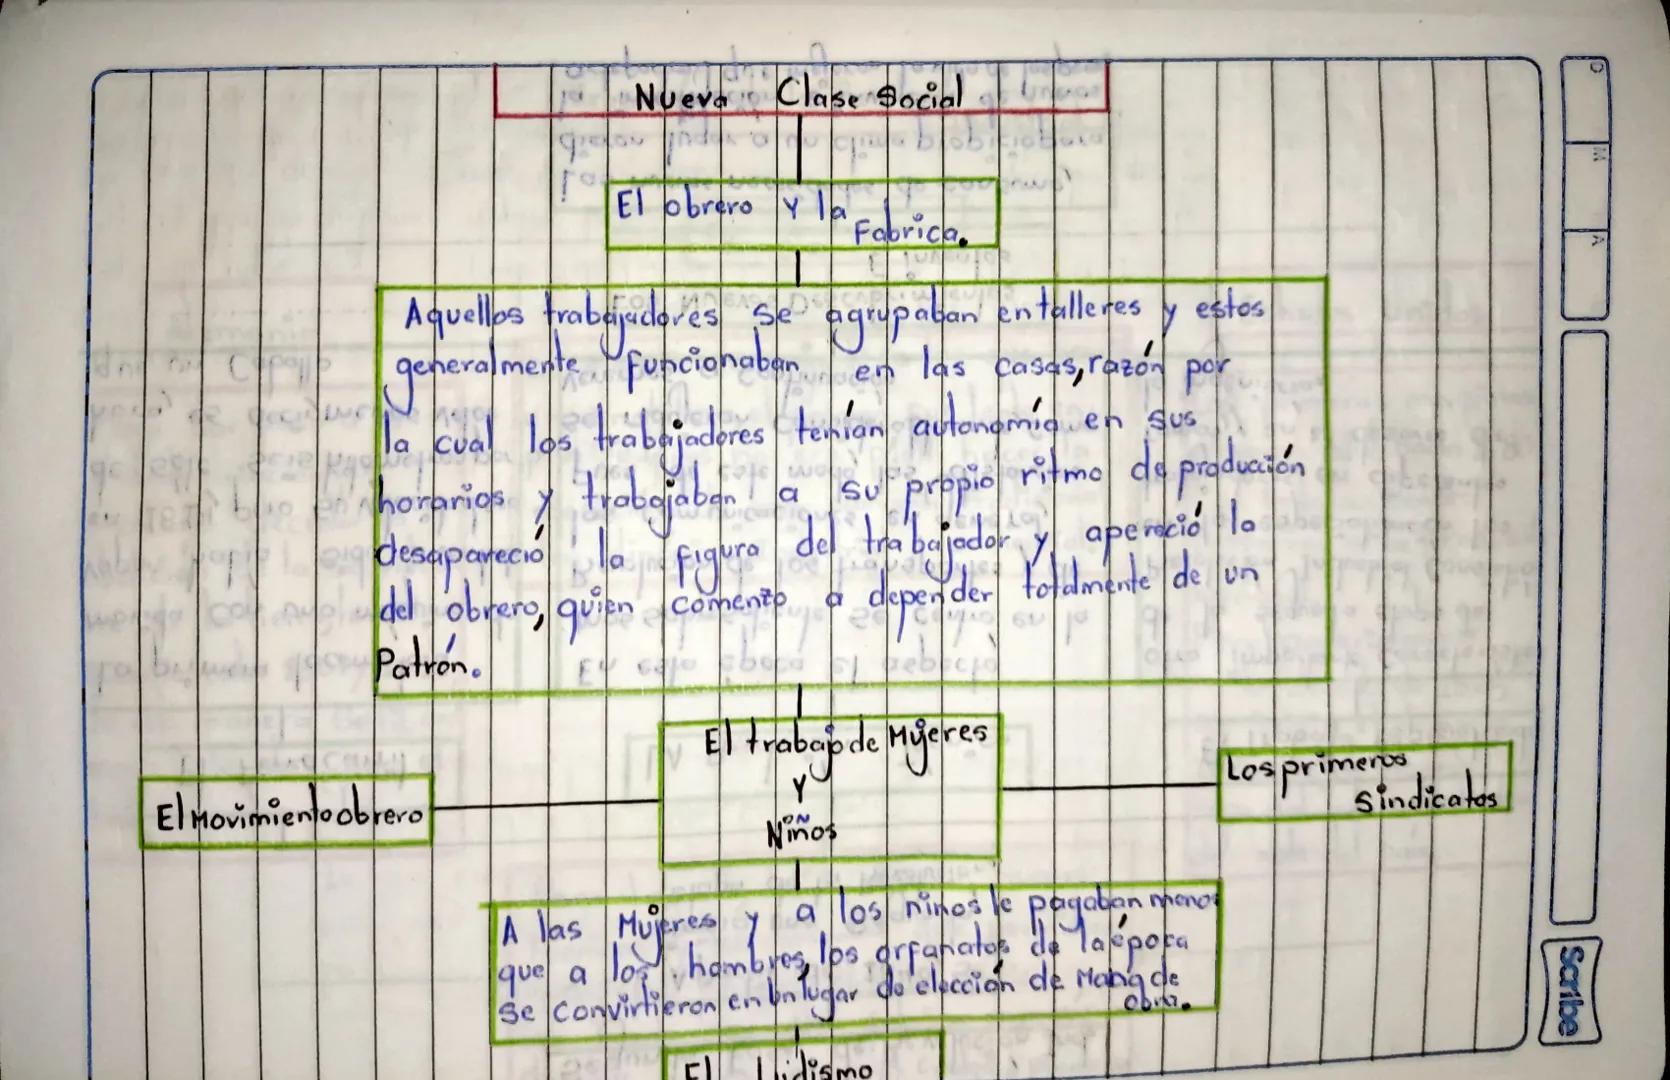 Nueva Clase Social
El obrero y la
Fabrica.
Aquellos trabajadores se agrupaban en talleres y estos
generalmente funcionaban en las casas, razón por
la cual los trabajadores tenían autonomía en sus
horarios y trabajaban a su propio ritmo de producción
desapareció la figura del trabajador y apereció la
del obrero, quien comento a depender totalmente de un
Patrón.
El trabajo de Mujeres
Y
Niños
El Movimiento obrero
Los primeros
sindicatos
A las Mujeres y a los ninos le pagaban menos
que a los hombres, los orfanatos de la época
se convirtieron en un lugar de elección de Mano de
obra.
El ludismo
D
M
A
Scribe